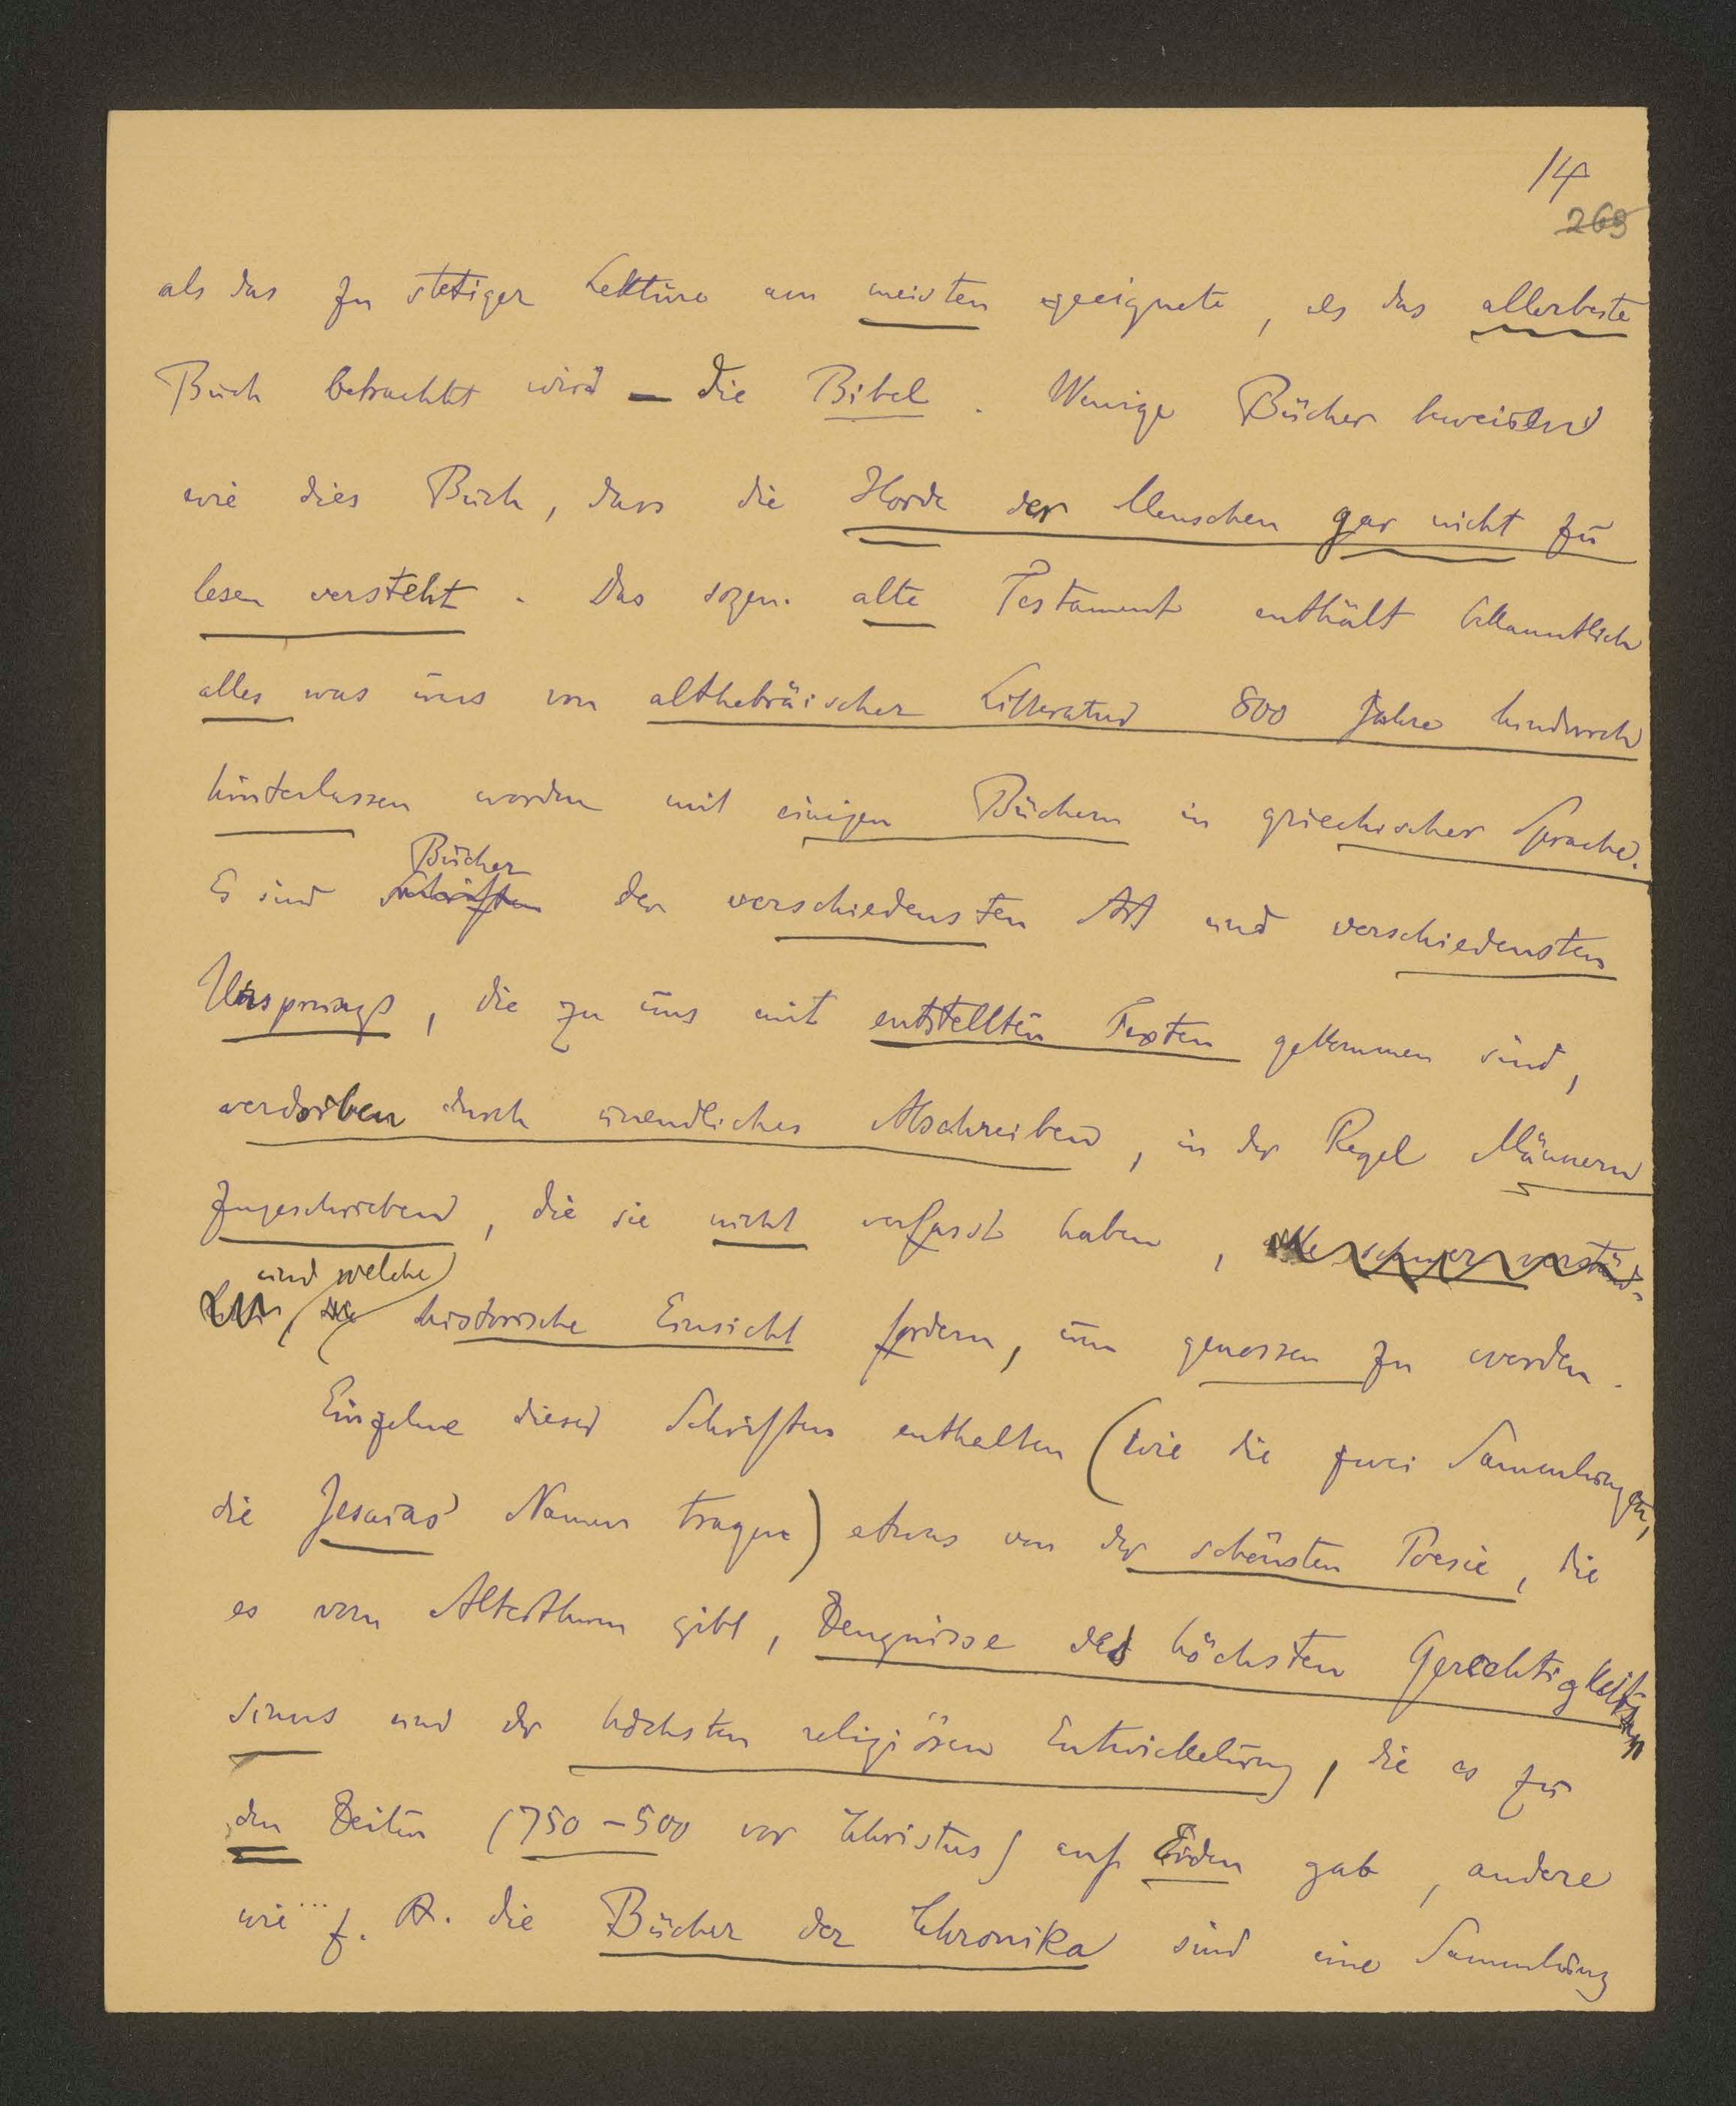 14
269
als das zu stetiger Lektüre am meisten geeignete, als das allerbeste
Buch betrachtet wird – die Bibel. Wenige Bücher beweisen
wie dies Buch, dass die Horde der Menschen gar nicht zu
lesen versteht. Das sogen. alte Testament enthält bekanntlich
alles was uns von althebräischer Litteratur 800 Jahre hindurch
hinterlassen worden mit einigen Büchern in griechischer Sprache.
Bücher
Es sind Schriften der verschiedensten Art und verschiedensten
Ursprungs, die zu uns mit entstellten Texten gekommen sind,
verdorben durch unendliches Abschreiben, in der Regel Männern
zugeschrieben, die sie nicht verfasst haben, alle schwer verständ-
und welche
lich, die historische Einsicht fordern, um genossen zu werden.
Einzelne dieser Schriften enthalten (wie die zwei Sammlungen,
die Jesaias' Namen tragen) etwas von der schönsten Poesie, die
es vom Alterthum gibt, Zeugnisse des höchsten Gerechtigkeits-
sinns und der höchsten religiösen Entwickelung, die es zu
den Zeiten (750–500 vor Christus) auf Erden gab, andere
wie z. B. die Bücher der Chronika sind eine Sammlung